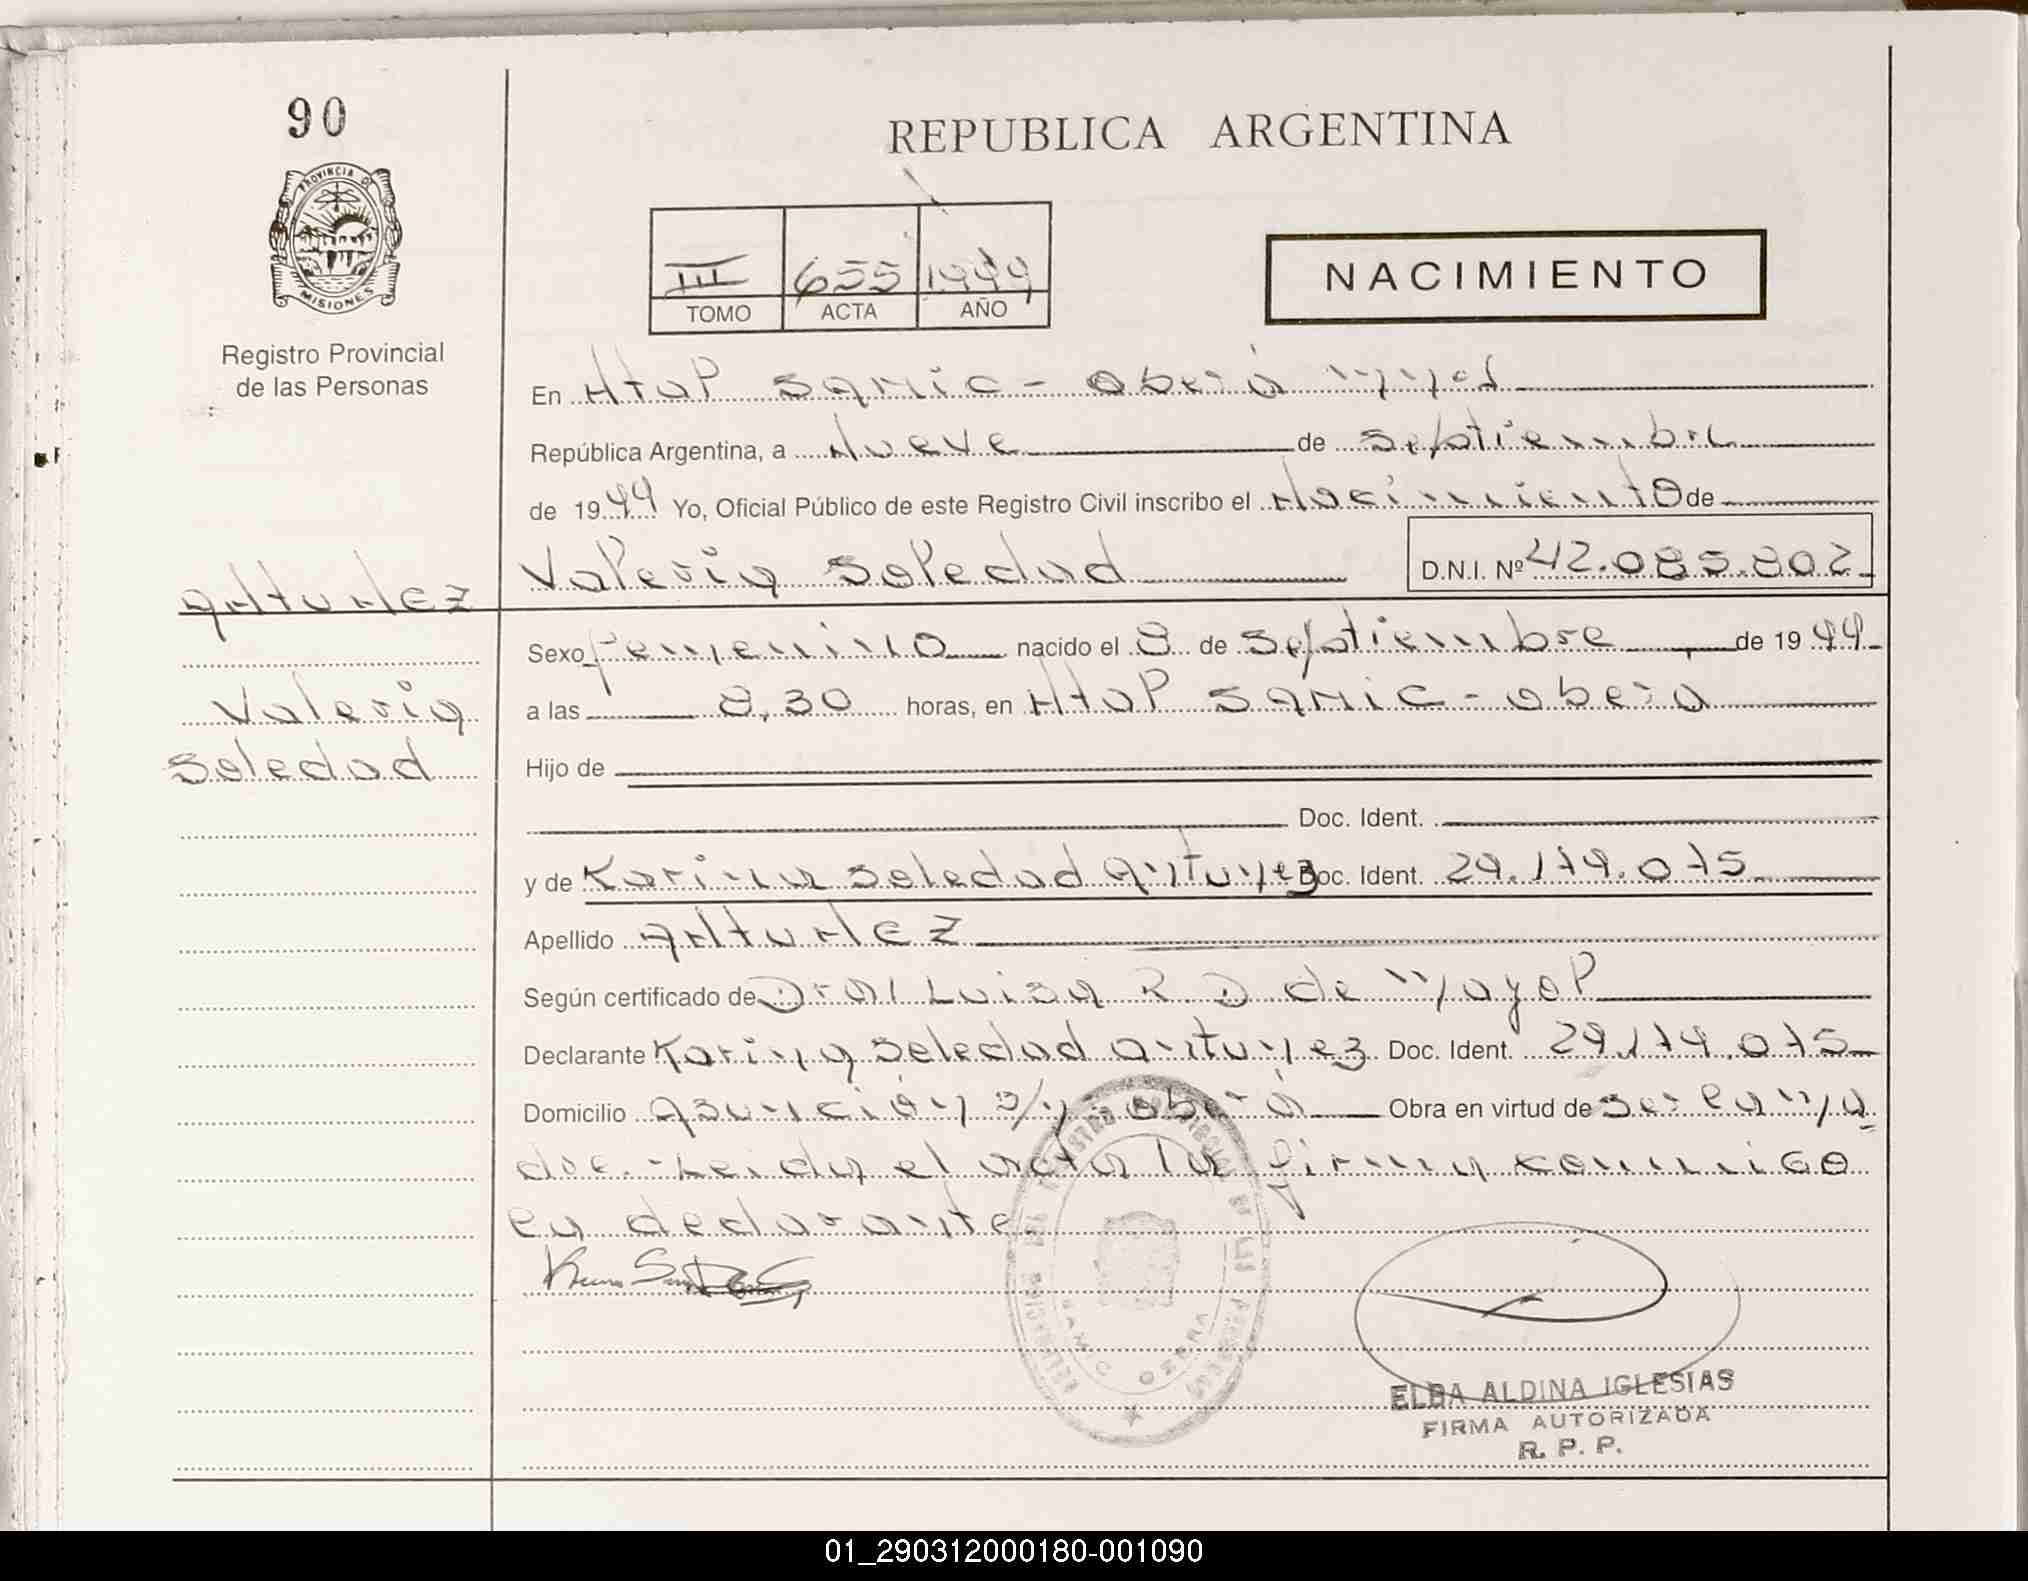 90
REPUBLICA ARGENTINA
PROVINCIA DE
MISIONES
Registro Provincial
de las Personas
III 655 1999
TOMO ACTA AÑO
NACIMIENTO
En Htal SAMIC - Oberá Mnes
República Argentina, a Nueve de Septiembre
de 1999 Yo, Oficial Público de este Registro Civil inscribo el Nacimiento de
Valeria Soledad D.N.I. Nº 42.085.802
ANTUNEZ
Valeria
Soledad
Sexo femenino nacido el 8 de Septiembre de 1999
a las 8,30 horas, en Htal SAMIC - Oberá
Hijo de
Doc. Ident.
y de Karina Soledad Antunez Doc. Ident. 29.179.075
Apellido ANTUNEZ
Según certificado de Dra Luisa R D de Mayol
Declarante Karina Soledad Antunez Doc. Ident. 29.179.075
Domicilio Asunción S/N - Oberá Obra en virtud de ser la Ma
dre. - Leida el acta la firma conmigo
la declarante.
SAMIC OBERA
ELBA ALDINA IGLESIAS
FIRMA AUTORIZADA
R. P. P.
01_290312000180-001090